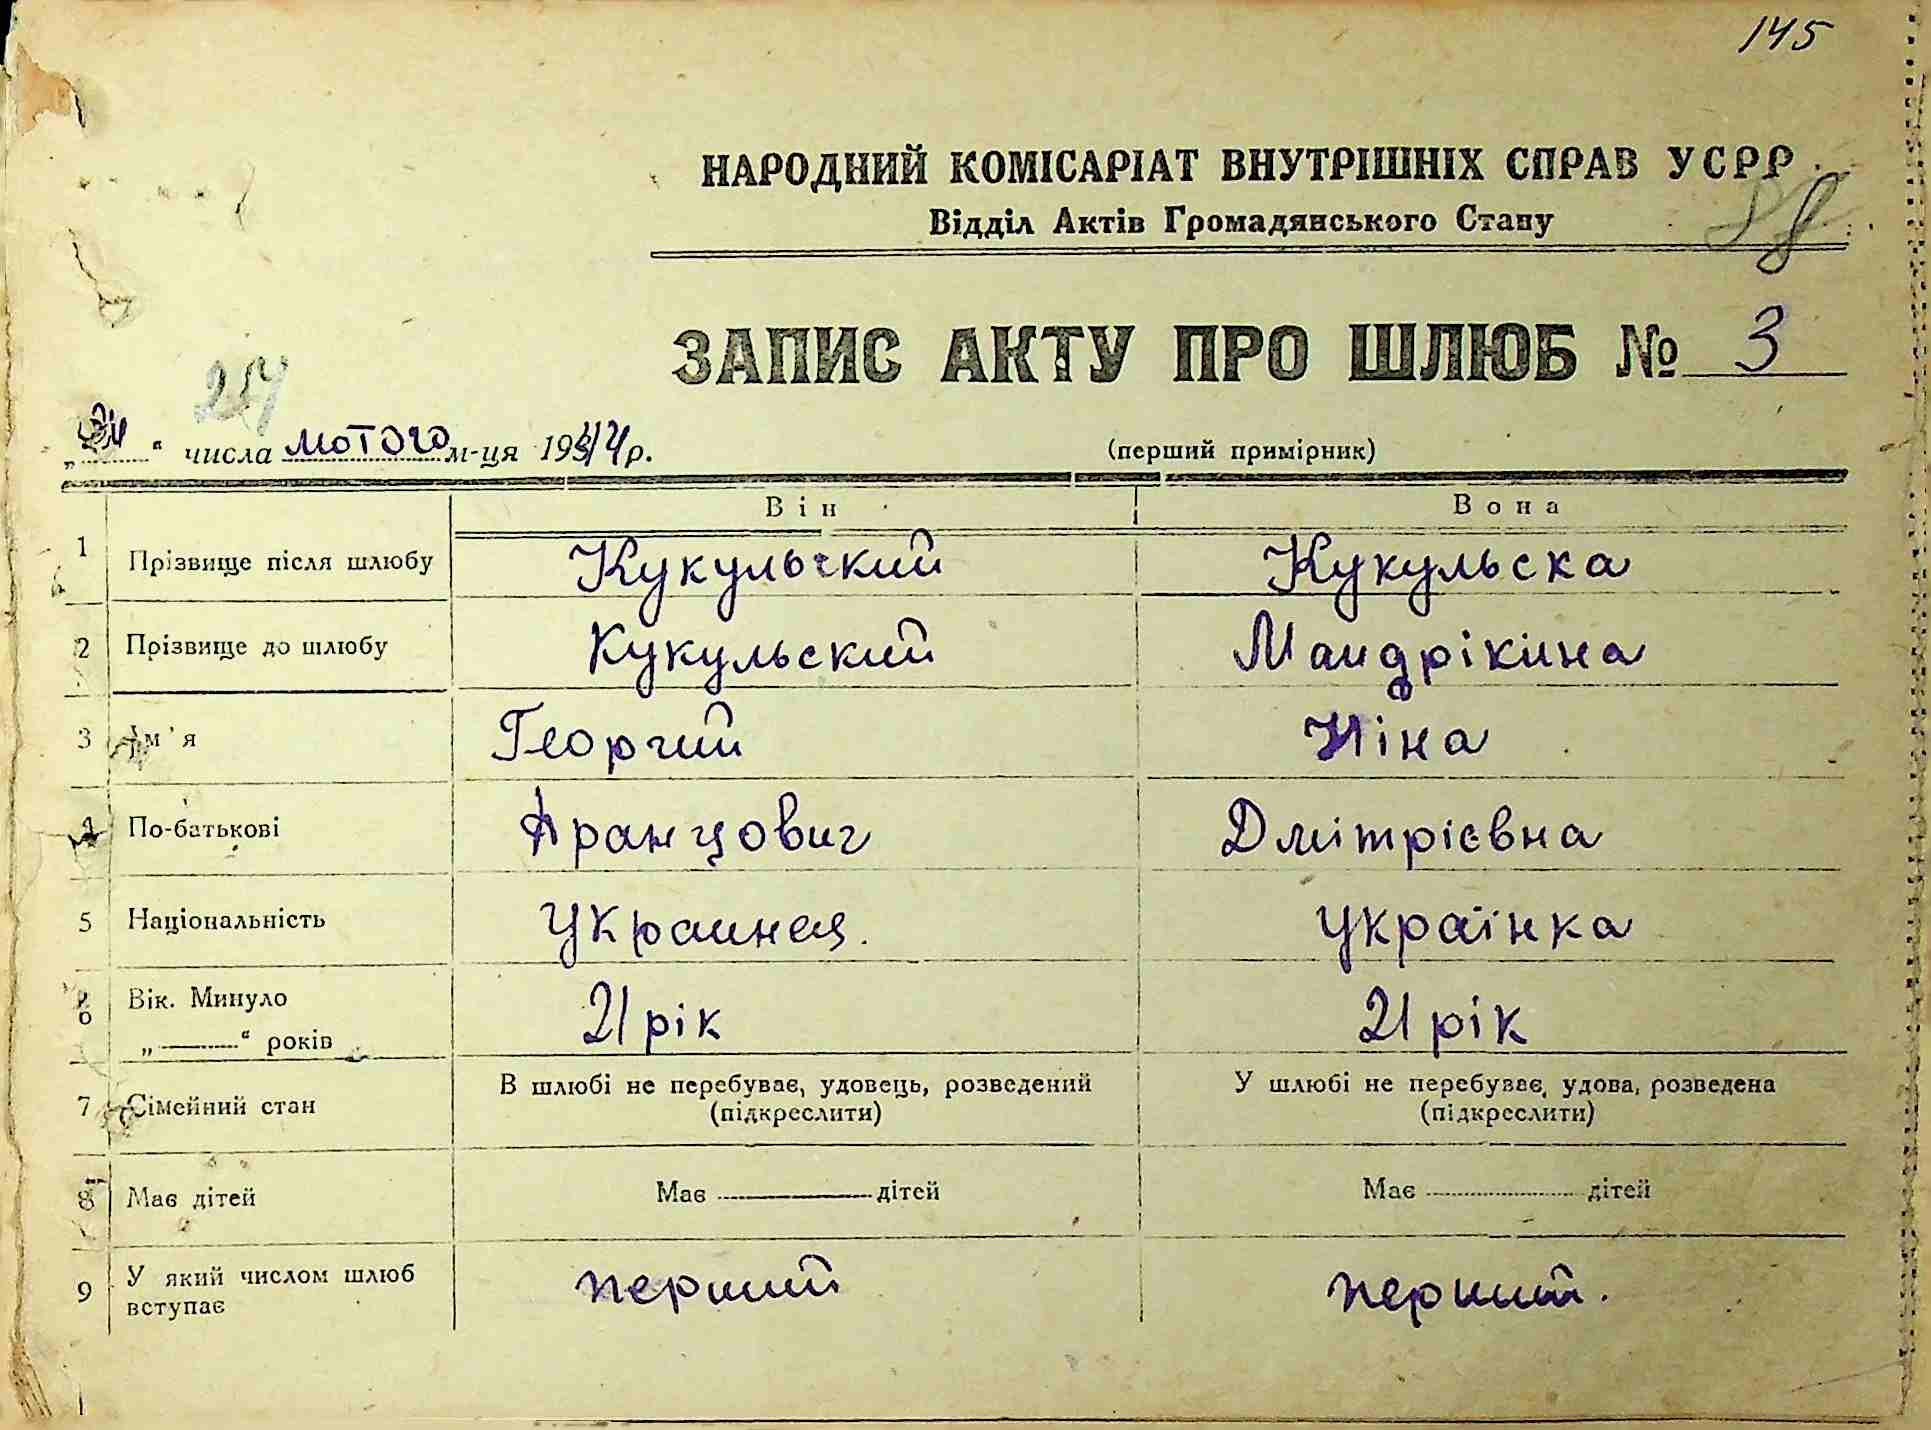 145
НАРОДНИЙ КОМІСАРІАТ ВНУТРІШНІХ СПРАВ УСРР
Відділ Актів Громадянського Стану
ЗАПИС АКТУ ПРО ШЛЮБ № 3
числа лютого м-ця 1944 р. (перший примірник)
Він Вона
1 Прізвище після шлюбу Кукульский Кукульска
2 Прізвище до шлюбу Кукульский Мандрікина
3 Ім'я Георгий Ніна
4 По-батькові Францович Дмітрієвна
5 Національність украинец. українка
6 Вік. Минуло 21 рік 21 рік
„ “ років
7 Сімейний стан В шлюбі не перебував, удовець, розведений У шлюбі не перебуває, удова, розведена
(підкреслити) (підкреслити)
8 Має дітей Має дітей Має дітей
9 У який числом шлюб вступає перший перший.